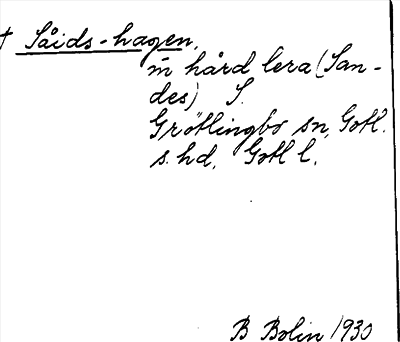 † Såids-hagen,
m̄ hård lera (San-
des) S.
Grötlingbo sn, Gotl.
s. hd, Gotl l.
B Bolin 1930